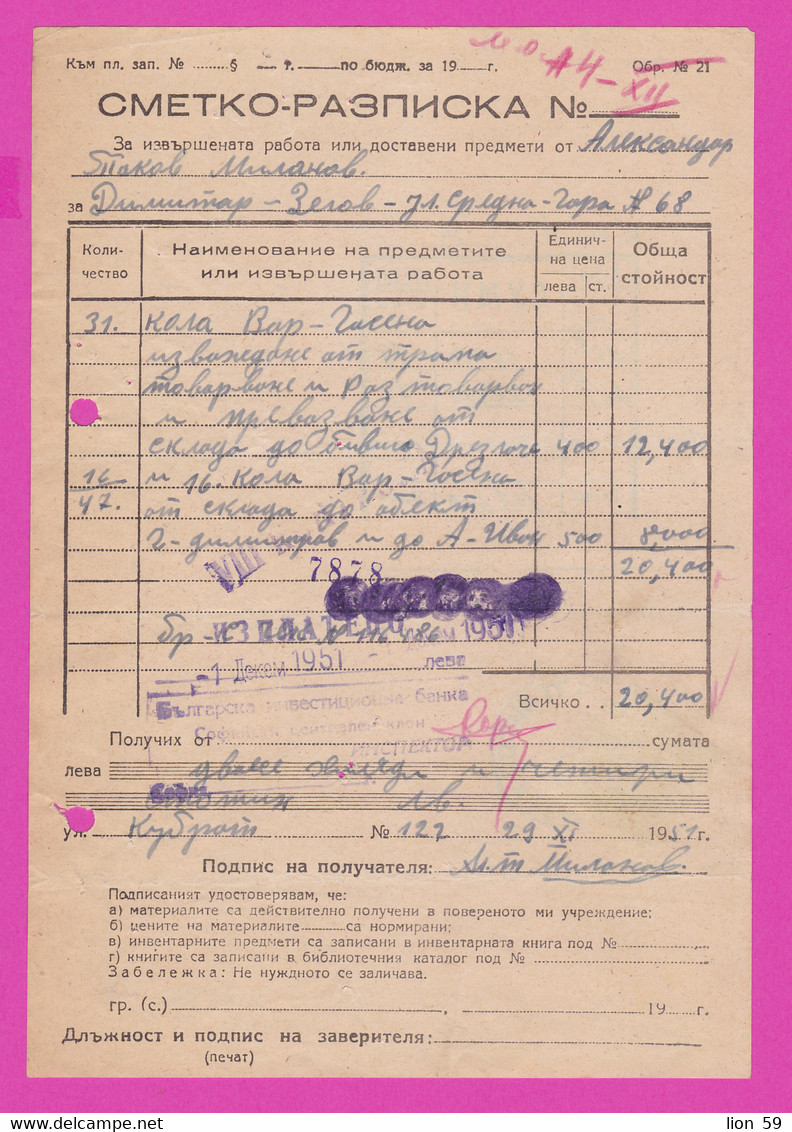 Към пл. зап. № § — г. — по бюдж. за 19 — г. Обр. № 21
14-XII
СМЕТКО-РАЗПИСКА №
За извършената работа или доставени предмети от Александър
Таков Миланов.
за Димитар - Зегов - ул. Средна-Гора № 68
Коли-чество Наименование на предметите или извършената работа Единич-на цена лева ст. Обща стойност
31. Кола Вар-Гасена
изваждане от трапа
товарване и Разтоварвон
и превазване от
склада до бившо 400 12,400
16/47. и 16. Кола Вар-Гасена
от склада до обект
Г-димитров и до А-Ивон 500 8,000
VIII 20,400
7878
ИЗПЛАТЕНО
-1 Деком 1951
лева
Българска инвестиционна банка Всичко . . 20,400
Софийски централен клон
Получих от сумата
ИНСПЕКТОР
лева дваесе хиляди и четири
София
стотин лв.
ул. Кубрат № 122 29 XI 1951 г.
Подпис на получателя: Ал. т Миланов.
Подписаният удостоверявам, че:
а) материалите са действително получени в повереното ми учреждение;
б) цените на материалите са нормирани;
в) инвентарните предмети са записани в инвентарната книга под №
г) книгите са записани в библиотечния каталог под №
Забележка: Не нуждното се заличава.
гр. (с.) , 19 г.
Длъжност и подпис на заверителя:
(печат)
lion 59